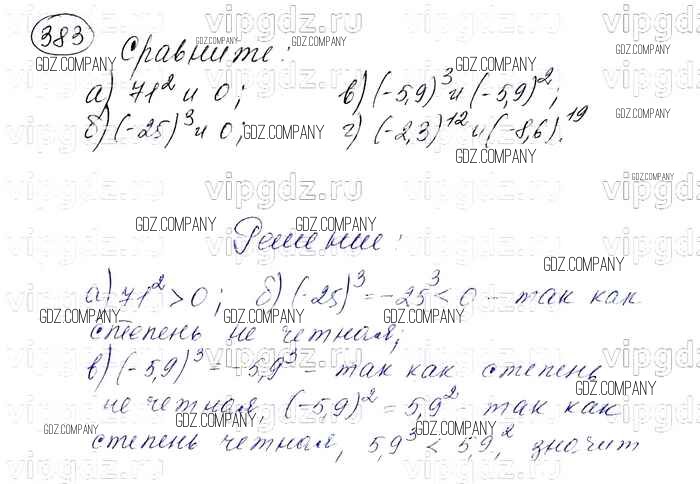 383
Сравните:
а) 71² и 0; в) (-5,9)³ и (-5,9)²;
б) (-25)³ и 0; г) (-2,3)¹² и (-8,6)¹⁹.
Решение:
а) 71² > 0; б) (-25)³ = -25³ < 0 - так как
степень не четная;
в) (-5,9)³ = -5,9³ - так как степень
не четная, (-5,9)² = 5,9² - так как
степень четная, 5,9³ < 5,9², значит
vipgdz.ru
GDZ.COMPANY